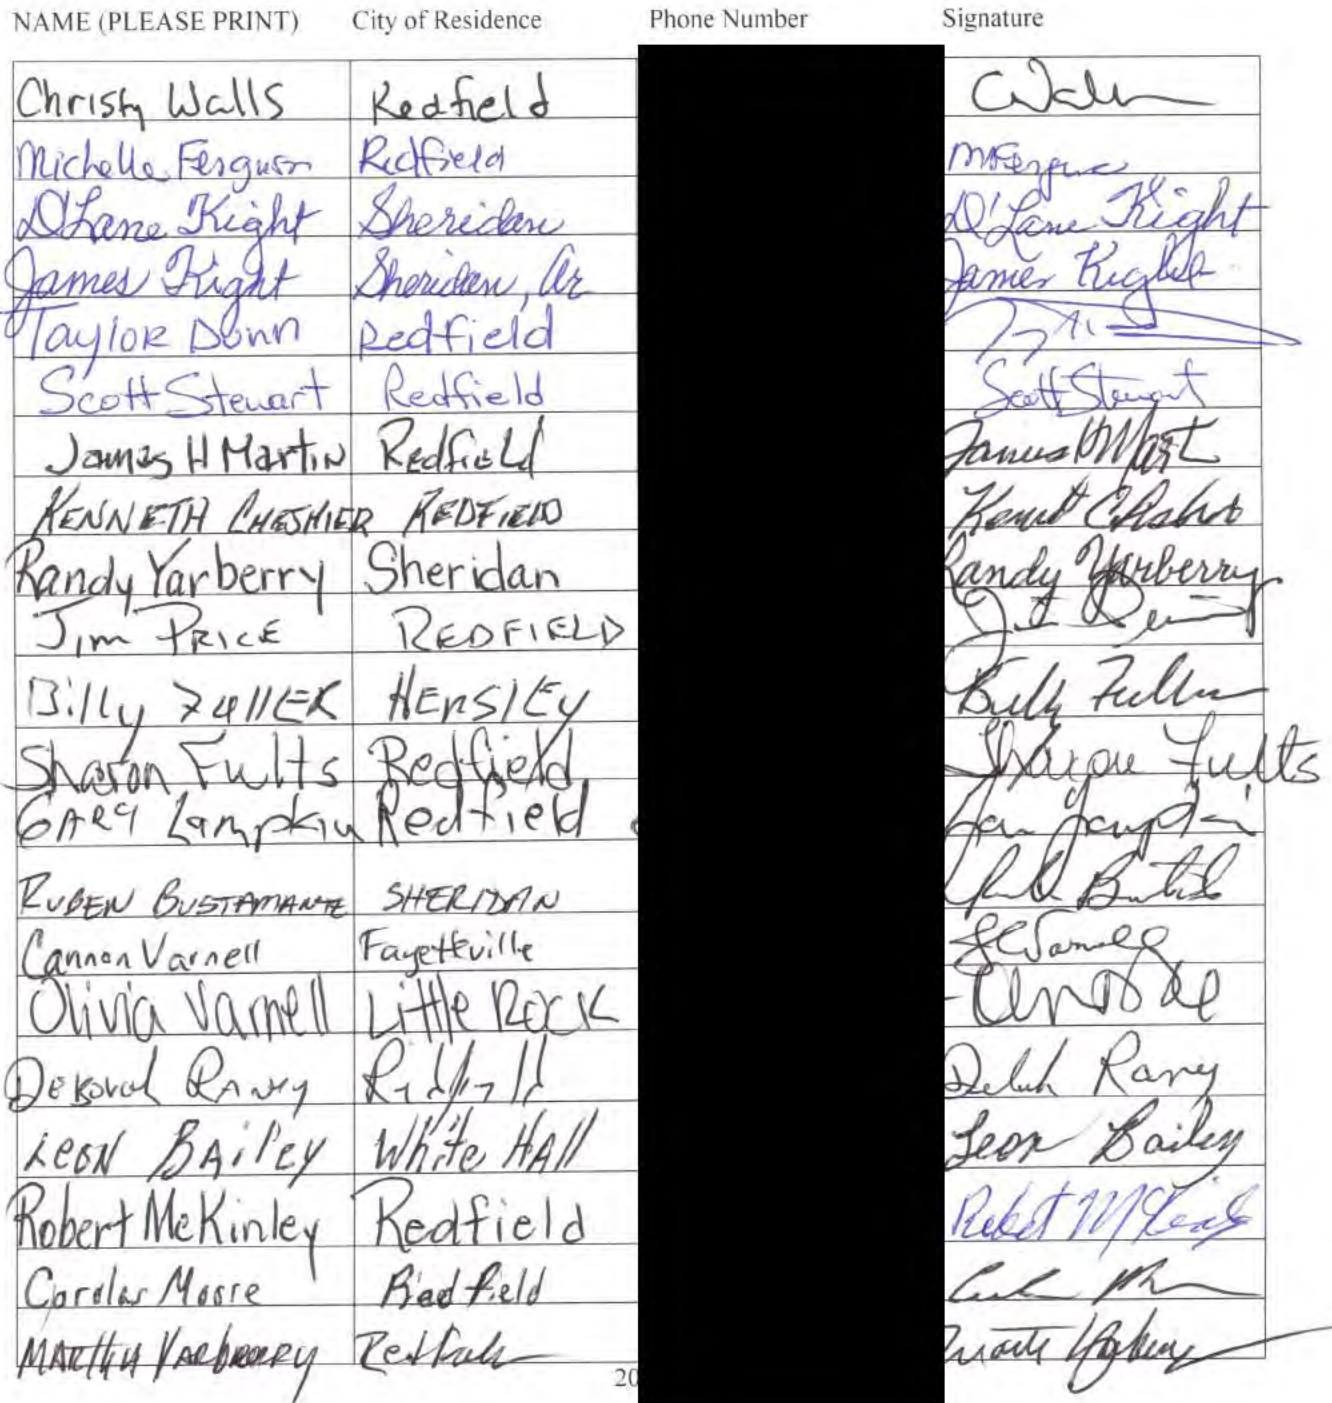 NAME (PLEASE PRINT) City of Residence Phone Number Signature
Christy Walls Redfield
Michelle Ferguson Redfield
D'Lane Kight Sheridan D'Lane Kight
James Kight Sheridan, Ar James Kight
Taylor Donn Redfield
Scott Stewart Redfield Scott Stewart
James H Martin Redfield James H Mart
KENNETH CHESHIER REDFIELD
Randy Yarberry Sheridan Randy Yarberry
Jim PRICE REDFIELD
Billy FullER HENSlEy Billy Fuller
Sharon Fults Redfield Sharon Fults
GARY Lampkin Redfield
RUBEN BUSTAMANTE SHERIDAN
Cannon Varnell Fayetteville
Olivia Varnell Little Rock
Deborah Raney Redfield Raney
LEON BAilEy White HAll Leon Bailey
Robert McKinley Redfield Robert
Moore Redfield
MARTHA YARBRERRY Redfield
20